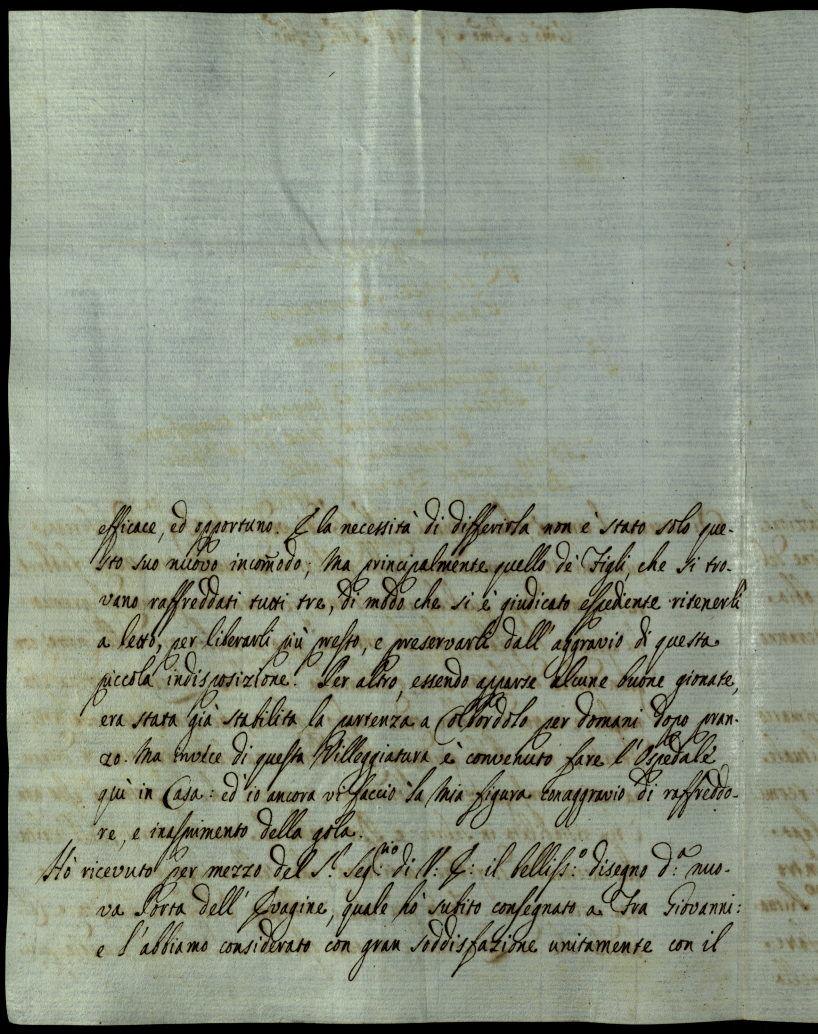 efficace, ed opportuno. E la necessità di differirla non è stato solo que-
sto suo nuovo incom̃odo; Ma principalmente quello de' Figli, che si tro-
vano raffreddati tutti tre, di modo che si è giudicato espediente ritenerli
a letto, per liberarli più presto, e preservarli dall' aggravio di questa
piccola indisposizione. Per altro, essendo apparse alcune buone gionate,
era stata già stabilita la partenza a Colbordolo per domani dopo pran-
zo. Ma invece di questa Villeggiatura è convenuto fare l'Ospedale
quì in Casa: ed io ancora vi faccio la Mia figura con aggravio di raffreddo-
re, e inasprimento della gola.
Hò ricevuto per mezzo del S.r Seg.rio di V: E: il belliss:o disegno d:a nuo-
va Porta dell' Evagine, quale hò subito consegnato a Fra Giovanni:
e l'abbiamo considerato con gran soddisfazione unitamente con il